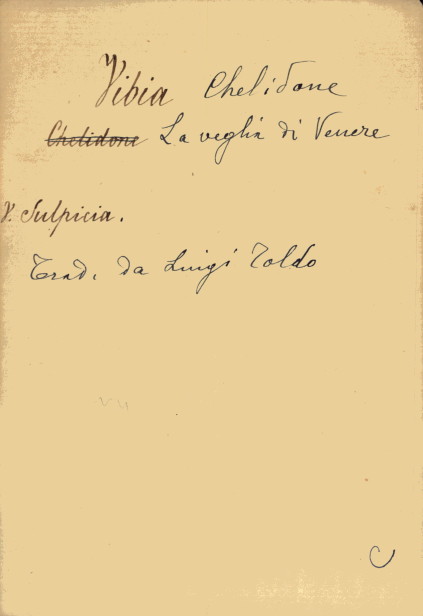 Vibia Chelidone
Chelidone La veglia di Venere
V. Sulpicia.
Trad. da Luigi Toldo